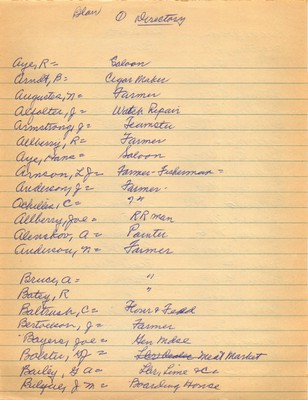 (Blair) ① Directory
Aye, R = Saloon
Arndt, B = Cigar Maker
Augusta, N = Farmer
Alfolter, J = Watch Repair
Armstrong, J = Teamster
Allberry, R = Farmer
Aye, Hans = Saloon
Arnson, L J = Farmer - Fisherman =
Anderson, J = Farmer -
Achilles, C = " "
Allberry, Joe = RR man
Alenskow, A = Painter
Anderson, N = Farmer
Bruce, A = "
Batey, R "
Baltrusk, C = Flour & Feed
Bertwson, J = Farmer
Bayers, Joe = Gen Mdse
Bolster, J = Meat Market
Bailey, G A = Lbr, Lime & Co
Bilger, J M = Boarding House